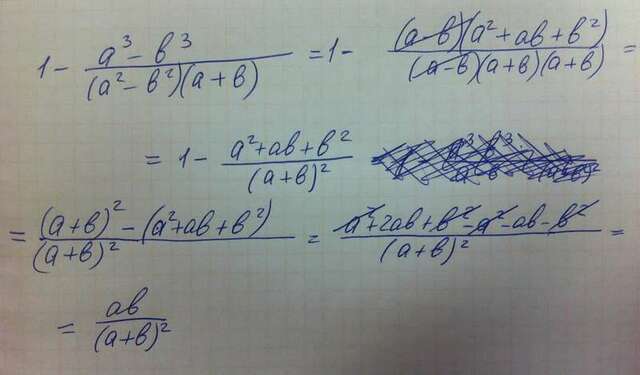 1 - (a³ - b³)/((a² - b²)(a + b)) = 1 - ((a-b)(a² + ab + b²))/((a-b)(a+b)(a+b)) =
= 1 - (a² + ab + b²)/(a+b)²
= ((a+b)² - (a² + ab + b²))/(a+b)² = (a² + 2ab + b² - a² - ab - b²)/(a+b)² =
= ab/(a+b)²